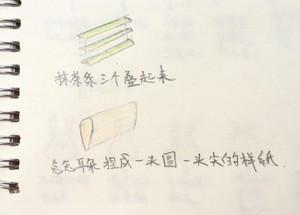 抹茶条三个叠起来
兔兔耳朵捏成一头圆一头尖的样纸.